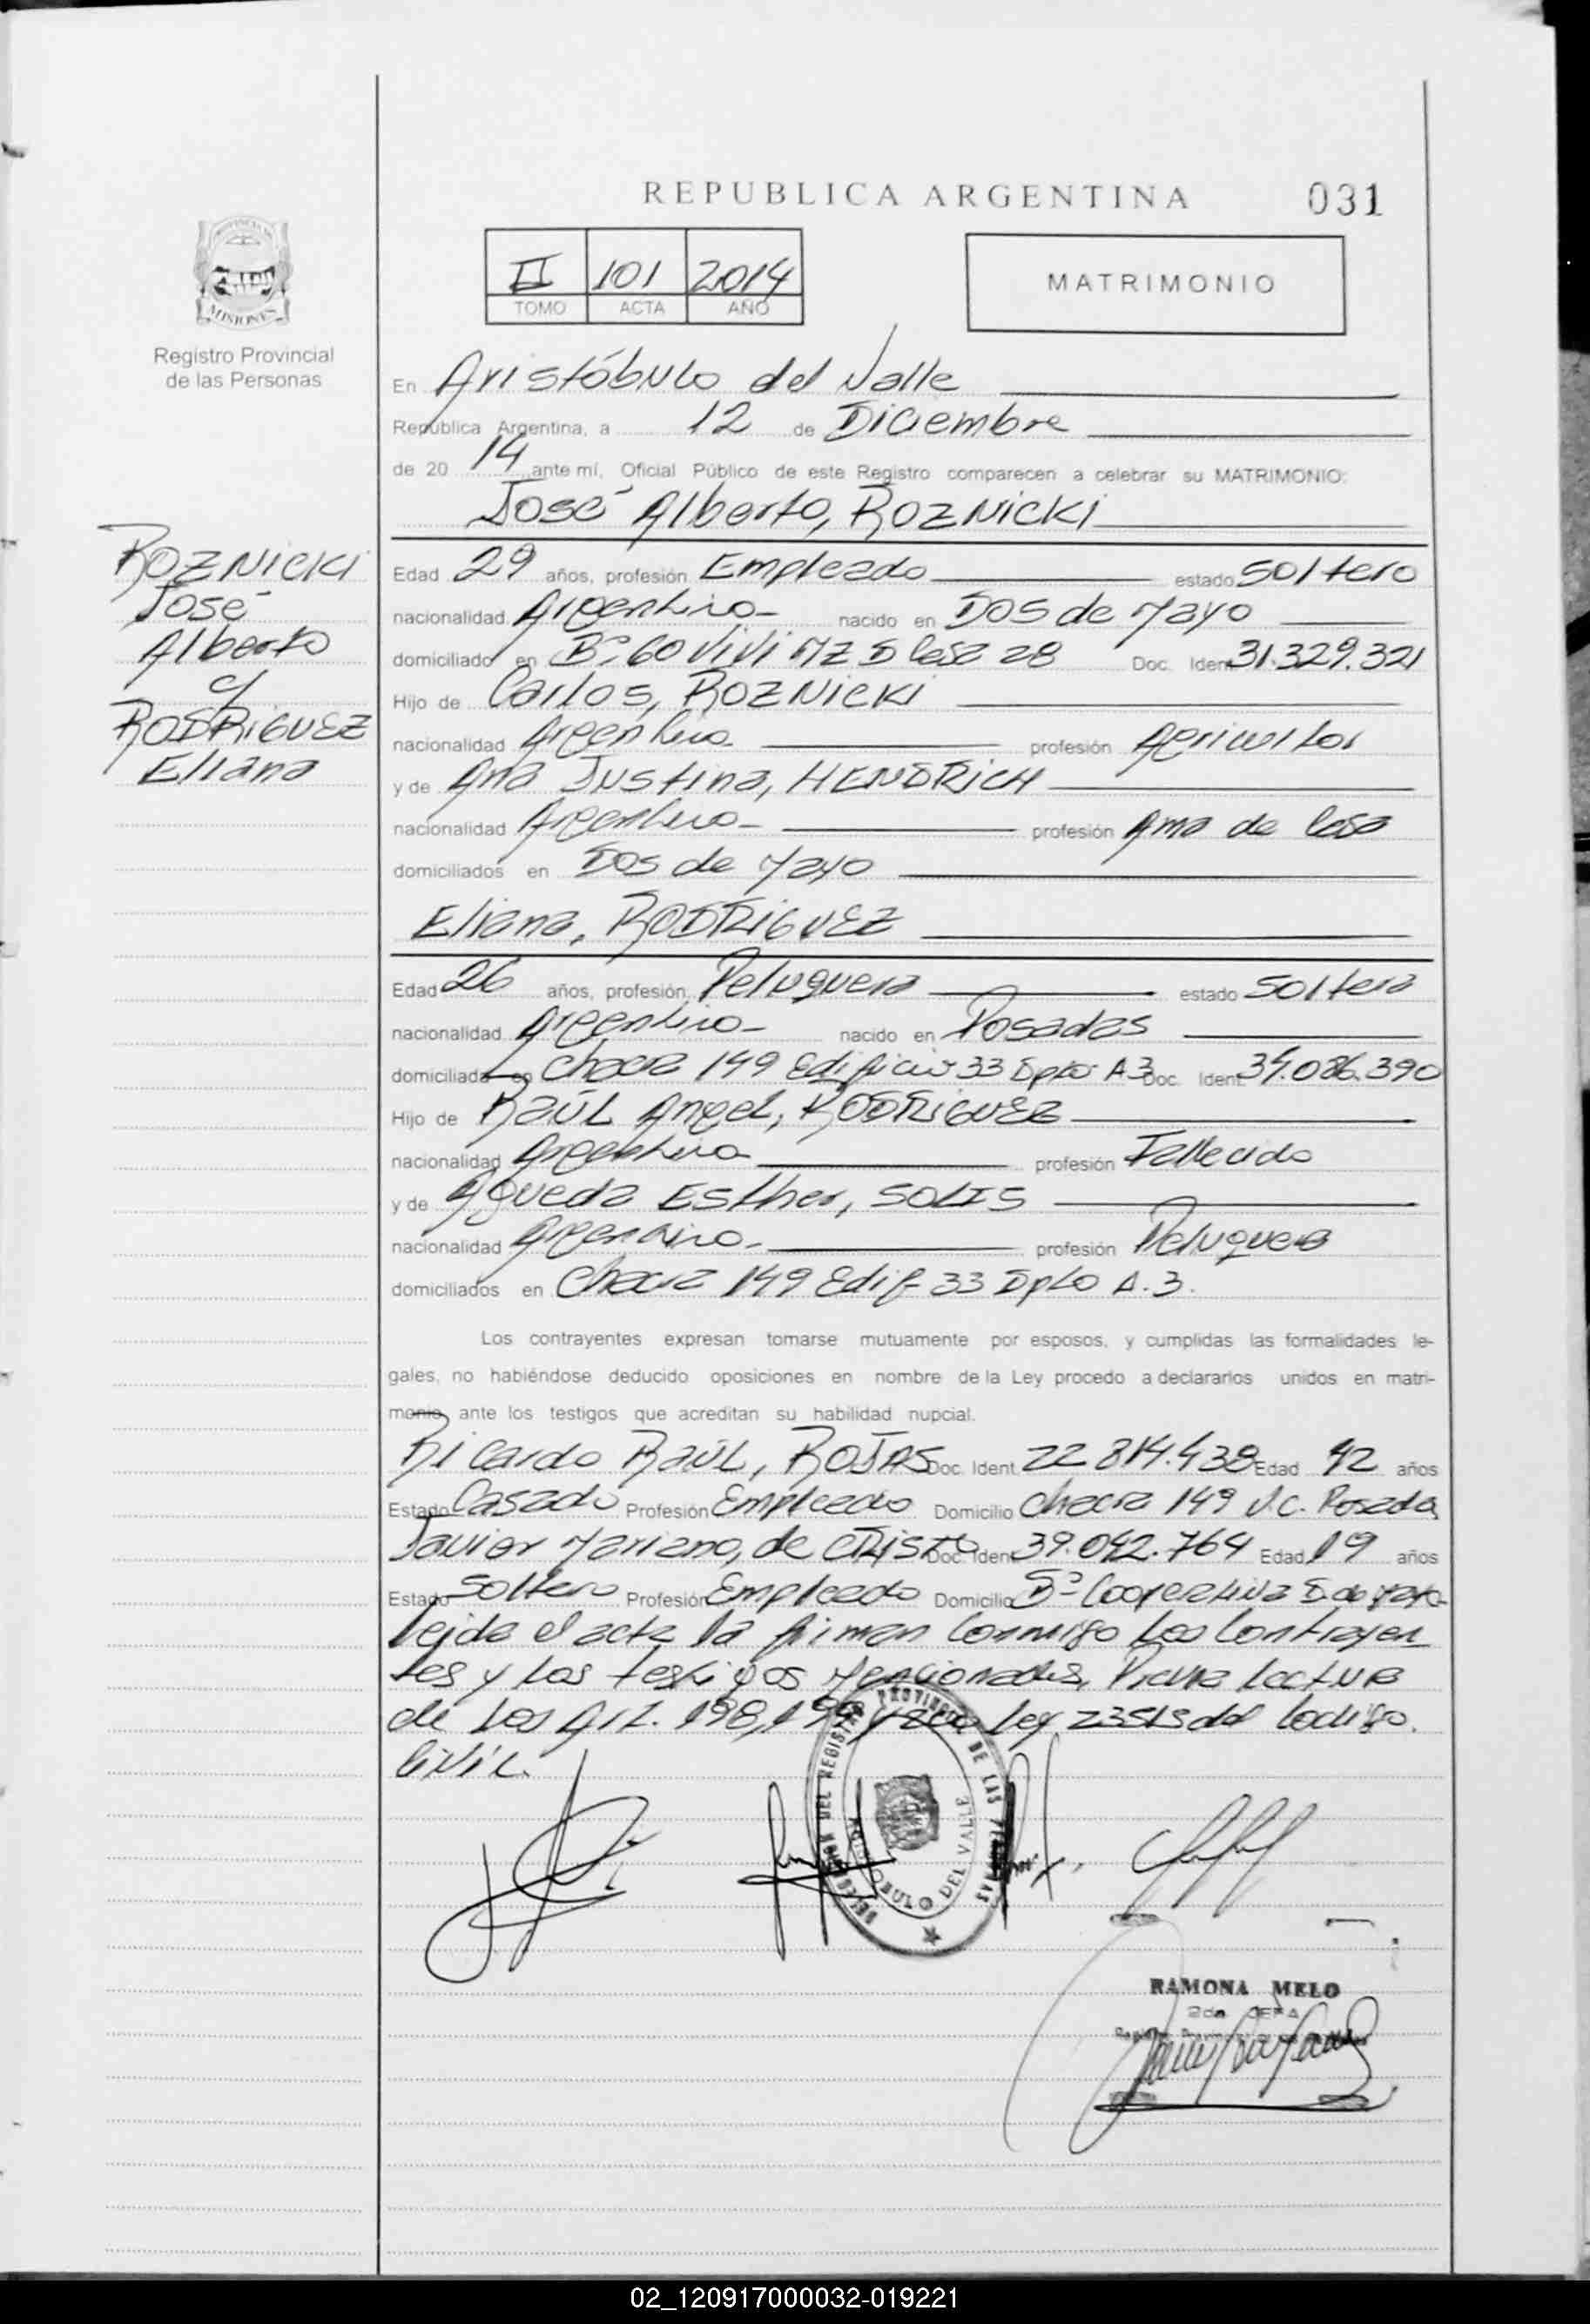 REPUBLICA ARGENTINA
031
II 101 2014
TOMO ACTA AÑO
MATRIMONIO
MISIONES
Registro Provincial
de las Personas
ROZNICKI
José
Alberto
c/
RODRIGUEZ
Eliana
En Aristóbulo del Valle
República Argentina, a 12 de Diciembre
de 20 14 ante mí, Oficial Público de este Registro comparecen a celebrar su MATRIMONIO:
José Alberto, ROZNICKI
Edad 29 años, profesión Empleado estado Soltero
nacionalidad Argentino nacido en Dos de Mayo
domiciliado en B° 60 Vivi MZ D Casa 28 Doc. Ident 31.329.321
Hijo de Carlos, ROZNICKI
nacionalidad Argentino profesión Agricultor
y de Ana Justina, HENDRICH
nacionalidad Argentino profesión Ama de Casa
domiciliados en Dos de Mayo
Eliana, RODRIGUEZ
Edad 26 años, profesión Peluquera estado Soltera
nacionalidad Argentino nacido en Posadas
domiciliado en Chacra 149 Edificio 33 Dpto A 3 Doc. Ident. 34.086.390
Hijo de RAÚL Angel, RODRIGUEZ
nacionalidad Argentino profesión Fallecido
y de Agueda Esther, SOLIS
nacionalidad Argentino profesión Peluquera
domiciliados en Chacra 149 Edif 33 Dpto A.3.
Los contrayentes expresan tomarse mutuamente por esposos, y cumplidas las formalidades le-
gales, no habiéndose deducido oposiciones en nombre de la Ley procedo a declararlos unidos en matri-
monio, ante los testigos que acreditan su habilidad nupcial.
Ricardo RAÚL, ROJAS Doc. Ident. 22.814.438 Edad 42 años
Estado Casado Profesión Empleado Domicilio Chacra 149 Posadas
Javier Mariano, de CRISTO Doc. Ident 39.042.764 Edad 19 años
Estado Soltero Profesión Empleado Domicilio B° Cooperativa D. de Mayo
Leida el acta la firman Conmigo Los Contrayen
tes y Los testigos Mencionados, Previa lectura
de Los Art. 198, 199 y 200 Ley 23515 del Codigo
Civil.
DELEGACION DEL REGISTRO PROVINCIAL DE LAS PERSONAS
ARISTOBULO DEL VALLE
RAMONA MELO
2da JEFA
02_120917000032-019221